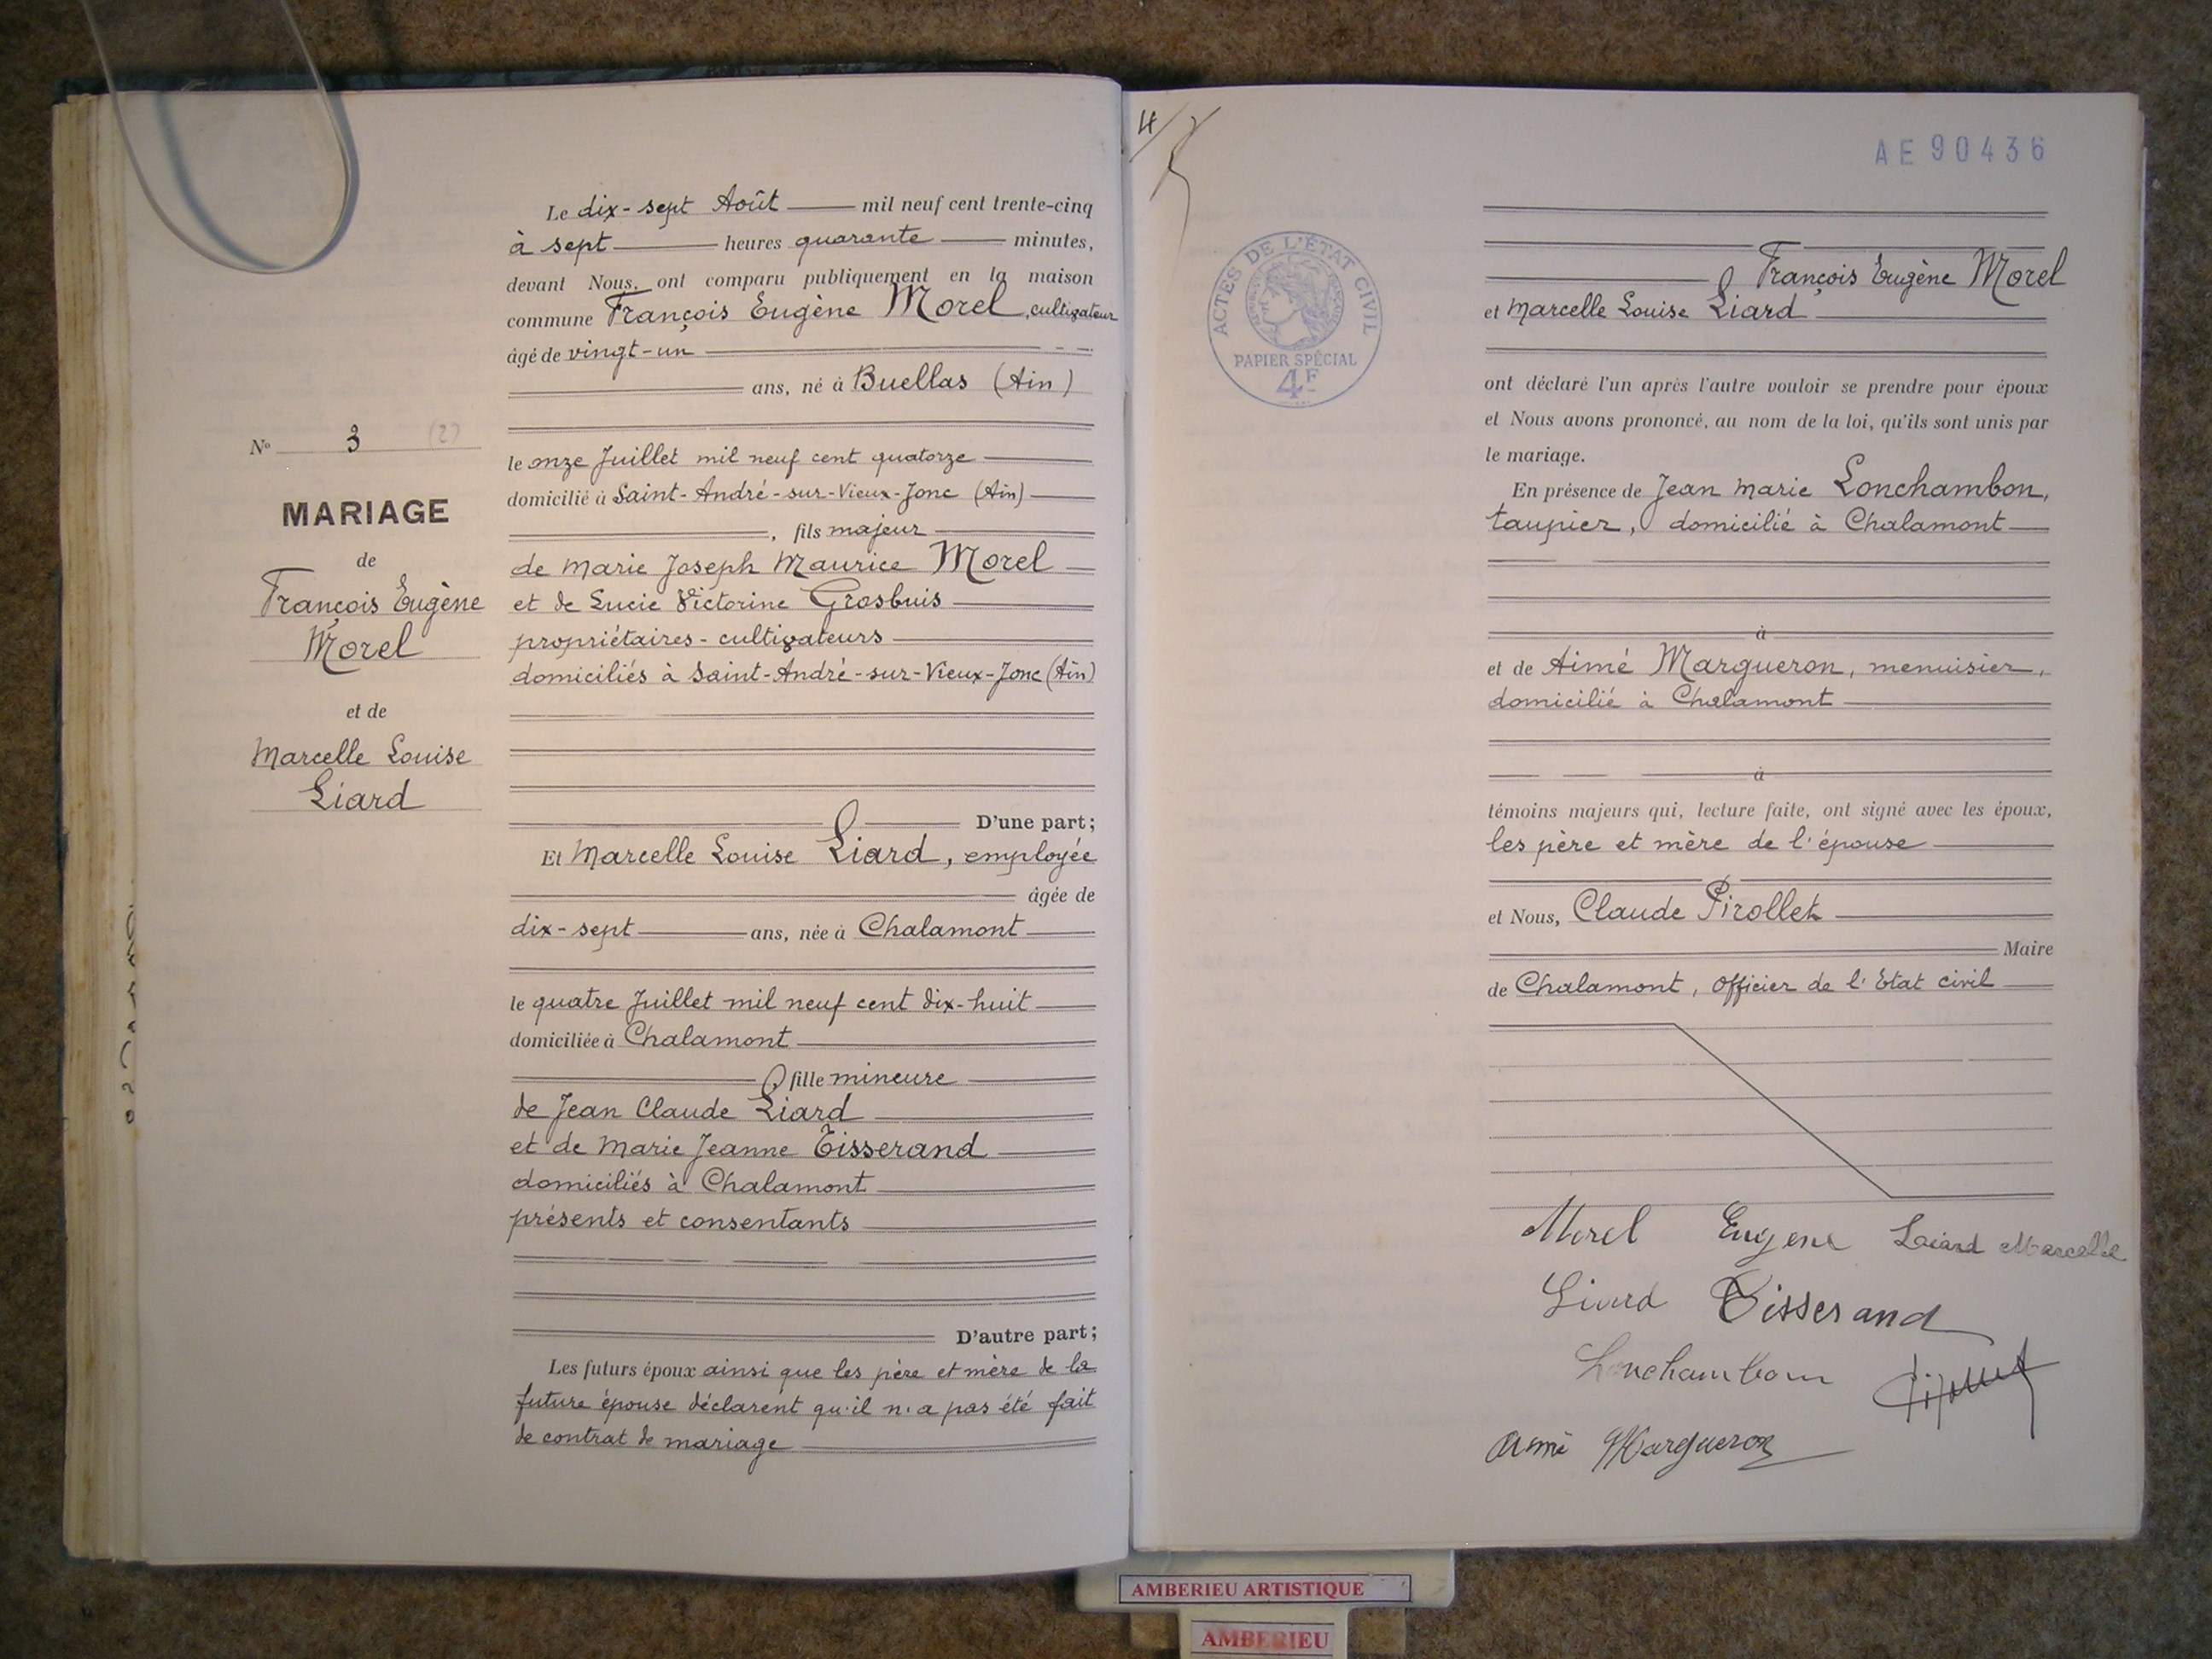 Le dix-sept Août mil neuf cent trente-cinq
à sept heures quarante minutes,
devant Nous, ont comparu publiquement en la maison
commune François Eugène Morel, cultivateur
âgé de vingt-un
ans, né à Buellas (Ain)
le onze Juillet mil neuf cent quatorze
domicilié à Saint-André-sur-Vieux-Jonc (Ain)
, fils majeur
de Marie Joseph Maurice Morel
et de Lucie Victorine Grosbuis
propriétaires-cultivateurs
domiciliés à Saint-André-sur-Vieux-Jonc (Ain)
D'une part;
Et Marcelle Louise Liard, employée
âgée de
dix-sept ans, née à Chalamont
le quatre Juillet mil neuf cent dix-huit
domiciliée à Chalamont
, fille mineure
de Jean Claude Liard
et de Marie Jeanne Tisserand
domiciliés à Chalamont
présents et consentants
D'autre part;
Les futurs époux ainsi que les père et mère de la
future épouse déclarent qu'il n'a pas été fait
de contrat de mariage
No 3 (2)
MARIAGE
de
François Eugène
Morel
et de
Marcelle Louise
Liard
4
AE 90436
ACTES DE L'ÉTAT CIVIL
PAPIER SPÉCIAL
4F
François Eugène Morel
et Marcelle Louise Liard
ont déclaré l'un après l'autre vouloir se prendre pour époux
et Nous avons prononcé, au nom de la loi, qu'ils sont unis par
le mariage.
En présence de Jean Marie Lonchambon,
taupier, domicilié à Chalamont
à
et de Aimé Margueron, menuisier,
domicilié à Chalamont
à
témoins majeurs qui, lecture faite, ont signé avec les époux,
les père et mère de l'épouse
et Nous, Claude Pirollet
Maire
de Chalamont, Officier de l'Etat civil
Morel Eugene Liard Marcelle
Liard Tisserand
Lonchambon
Aimé Margueron
AMBERIEU ARTISTIQUE
AMBERIEU